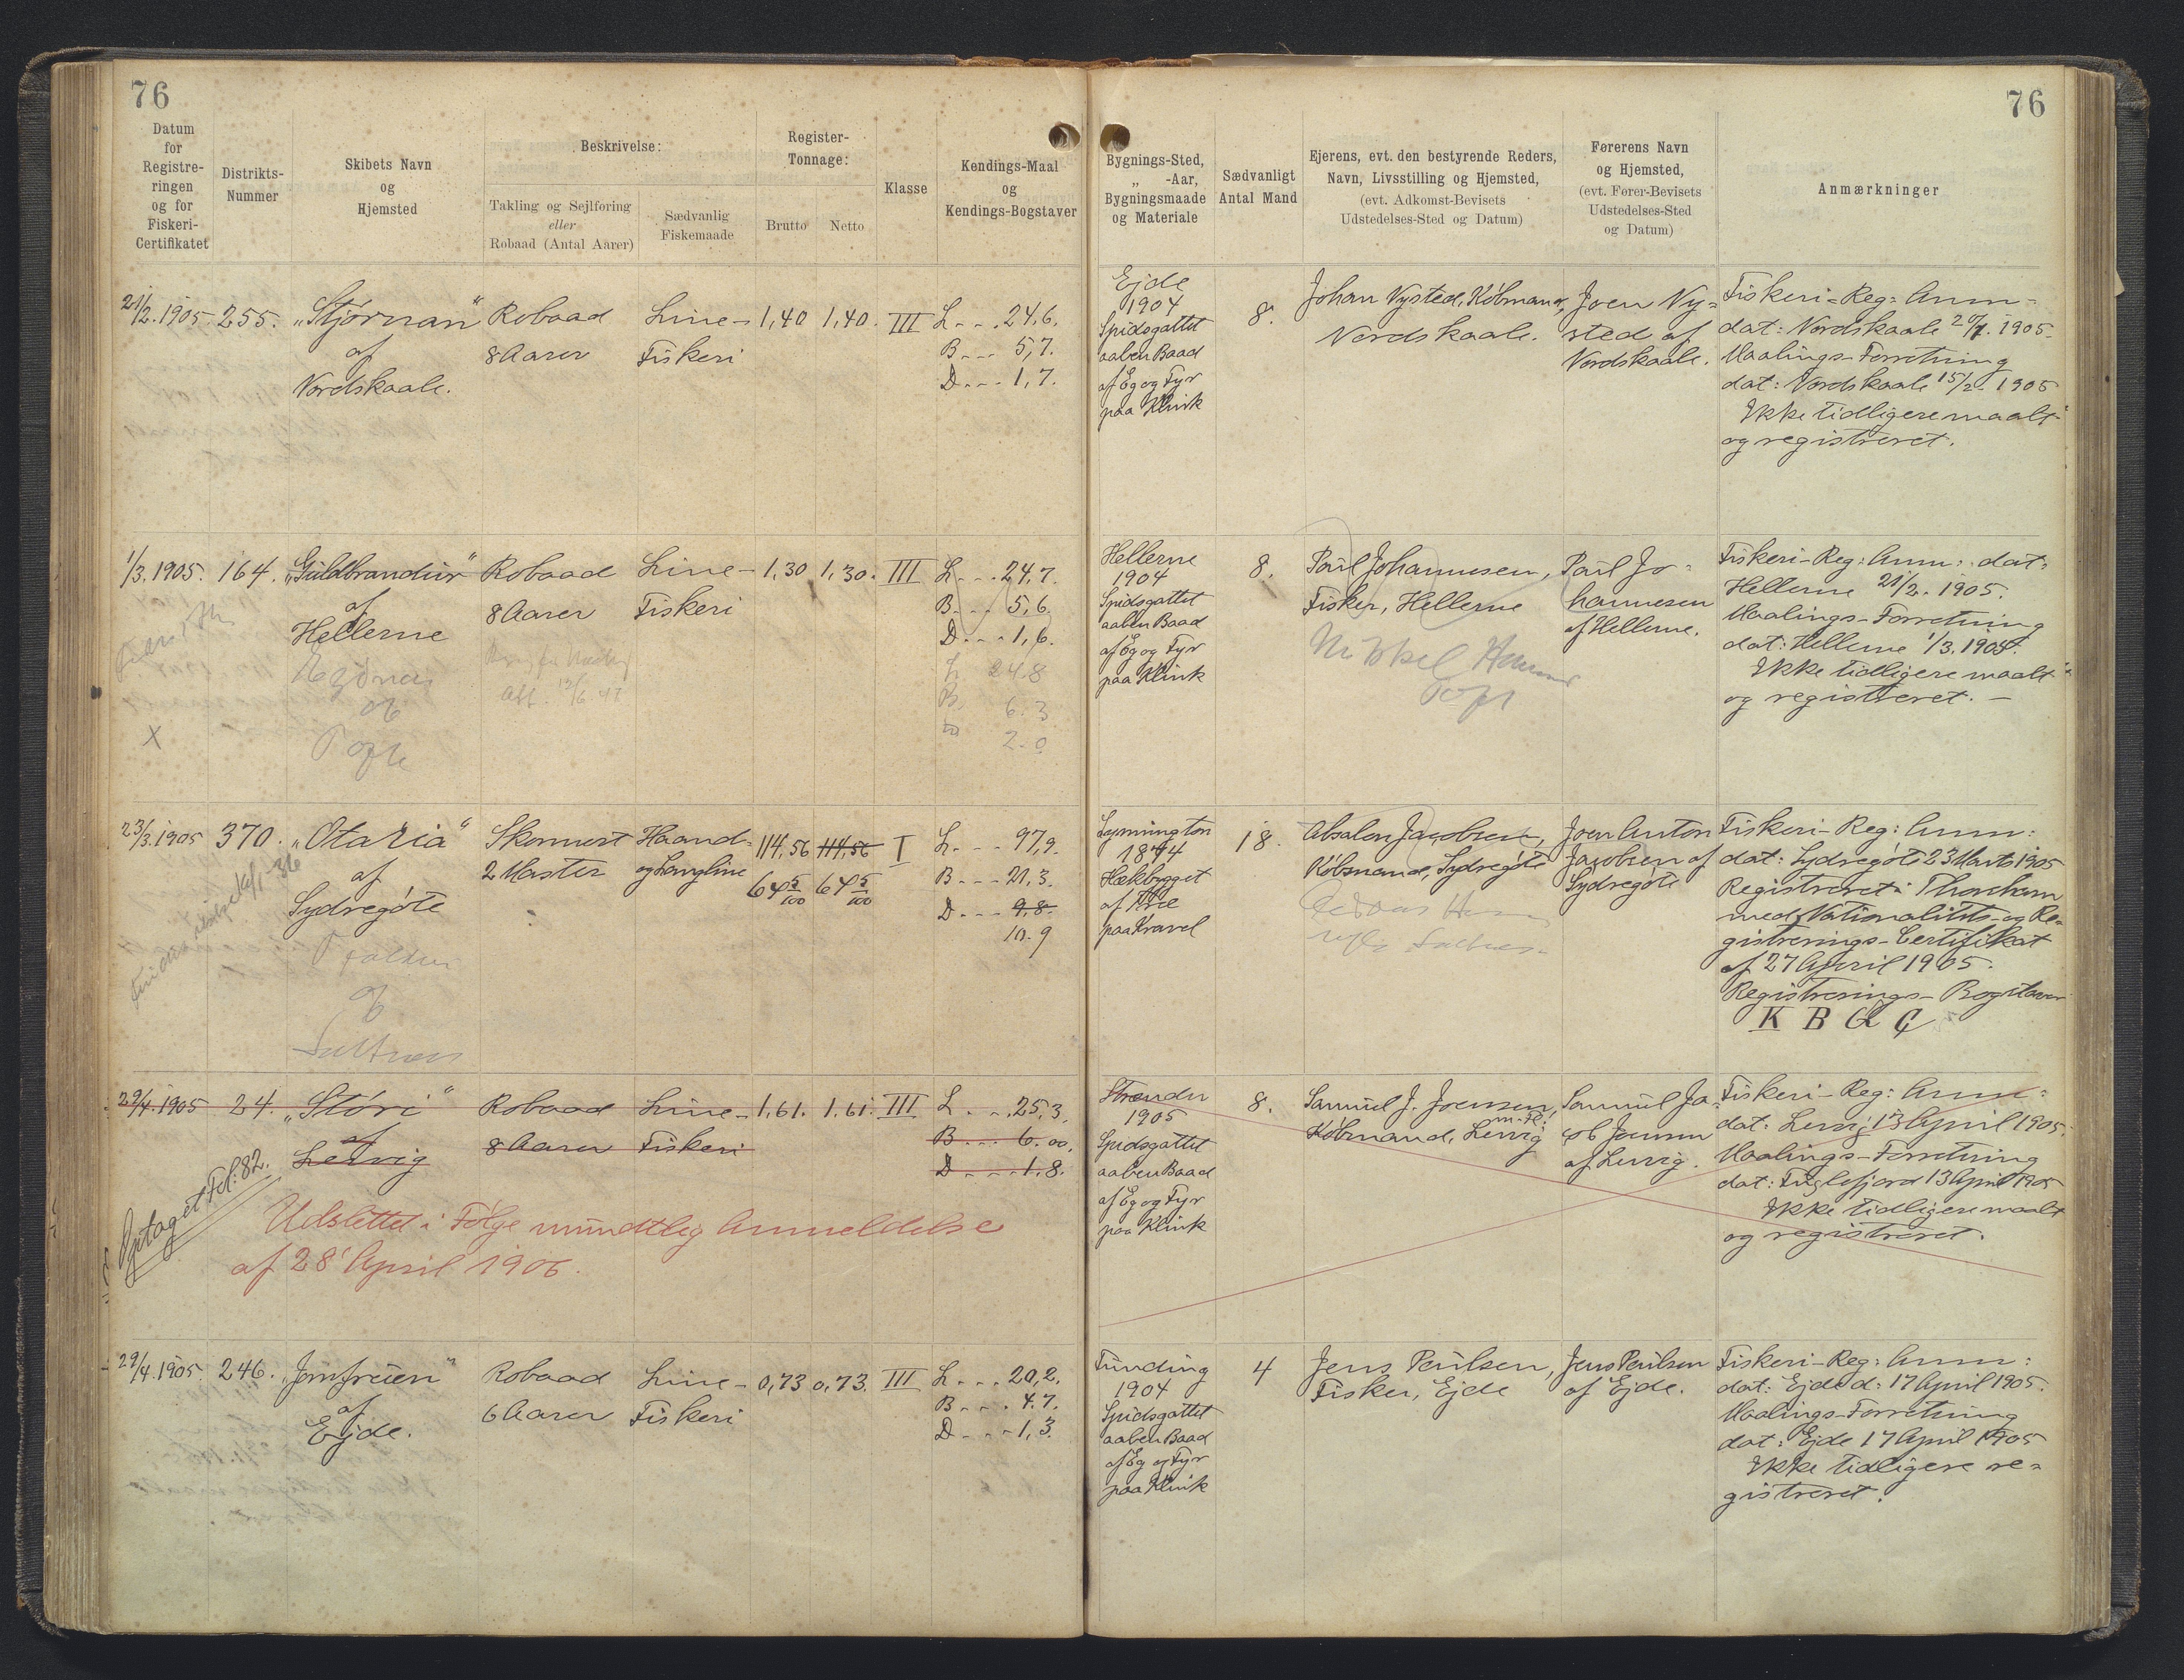 76
76
Datum
for
Registre-
ringen
og for
Fiskeri-
Certifikatet
Distrikts-
Nummer
Skibets Navn
og
Hjemsted
Beskrivelse:
Takling og Sejlføring
eller
Robaad (Antal Aarer)
Sædvanlig
Fiskemaade
Register-
Tonnage:
Brutto
Netto
Klasse
Kendings-Maal
og
Kendings-Bogstaver
Bygnings-Sted,
„ -Aar,
Bygningsmaade
og Materiale
Sædvanligt
Antal Mand
Ejerens, evt. den bestyrende Reders,
Navn, Livsstilling og Hjemsted,
(evt. Adkomst-Bevisets
Udstedelses-Sted og Datum)
Førerens Navn
og Hjemsted,
(evt. Fører-Bevisets
Udstedelses-Sted
og Datum)
Anmærkninger
21/2.1905.
255.
„Stjörnan"
af
Nordskaale.
Robaad
8 Aarer
Line-
Fiskeri
1,40
1,40.
III
L - - . 24,6.
B - - - 5,7.
D - - - 1,7.
Ejde
1904
Spidsgattet
aaben Baad
af Eg og Fyr
paa Klink
8.
Johan Nysted, Købmand,
Nordskaale.
Joen Ny=
sted af
Nordskaale.
Fiskeri-Reg: Anm=
dat: Nordskaale 20/1. 1905.
Maalings-Forretning
dat: Nordskaale 15/2. 1905
Ikke tidligere maalt
og registreret.
1/3.1905.
164.
„Guldbrandur"
af
Hellerne
Robaad
8 Aarer
Line-
Fiskeri
1,30
1,30.
III
L - - . 24,7.
B - - 5,6.
D - - - 1,6.
L 24.8
B 6.3
D 2.0
X
af
Hellerne
1904
Spidsgattet
aaben Baad
af Eg og Fyr
paa Klink
8.
Poul Johannesen,
Fisker, Hellerne
Poul Jo=
hannesen
af Hellerne.
Fiskeri-Reg: Anm: dat:
Hellerne 21/2. 1905.
Maalings-Forretning
dat: Hellerne 1/3. 1905.
Ikke tidligere maalt
og registreret. —
23/3.1905
370.
„Otaria"
af
Sydregøte
Skonnert
2 Master
Haand-
og Langline
114,56
114,56
64 5/100
64 5/100
I
L - - - 97,9.
B - - - 21,3.
D - - - 9,8.
10.9
af
Saltnes
Lymington
1874
Hækbygget
af Træ
paa Kravel
18.
Absalon Jacobsen,
Købmand, Sydregøte
Joen Anton
Jacobsen af
Sydregøte
Fiskeri-Reg: Anm:
dat: Sydregøte 23 Marts 1905
Registreret i Thorshavn
med Nationalitets- og Re-
gistrerings-Certifikat
af 27 April 1905.
Registrerings-Bogstaver
K B G C
29/4.1905
24.
„Stóri"
af
Lervig
Robaad
8 Aarer
Line-
Fiskeri
1,61.
1,61.
III
L - - . 25,3.
B - - - 6,00.
D - - - 1,8.
Optaget Fol: 82.
Udslettet i Følge mundtlig Anmeldelse
af 28' April 1906.
Strender
1905
Spidsgattet
aaben Baad
af Eg og Fyr
paa Klink
8.
Samuel J. Joensen,
m. Fl:
Købmand, Lervig
Samuel Ja-
cob Joensen
af Lervig.
Fiskeri-Reg: Anm:
dat: Lervig 13 April 1905.
Maalings-Forretning
dat: Fuglefjord 13 April 1905
Ikke tidligere maalt
og registreret.
29/4.1905.
246.
„Jomfruen"
af
Ejde.
Robaad
6 Aarer
Line-
Fiskeri
0,73
0,73.
III
L - - . 20,2.
B - - . 4.7.
D - - - 1,3.
Funding
1904
Spidsgattet
aaben Baad
af Eg og Fyr
paa Klink
4
Jens Poulsen,
Fisker, Ejde
Jens Poulsen
af Ejde.
Fiskeri-Reg: Anm:
dat: Ejde d: 17 April 1905.
Maalings-Forretning
dat: Ejde 17 April 1905
Ikke tidligere re=
gistreret.